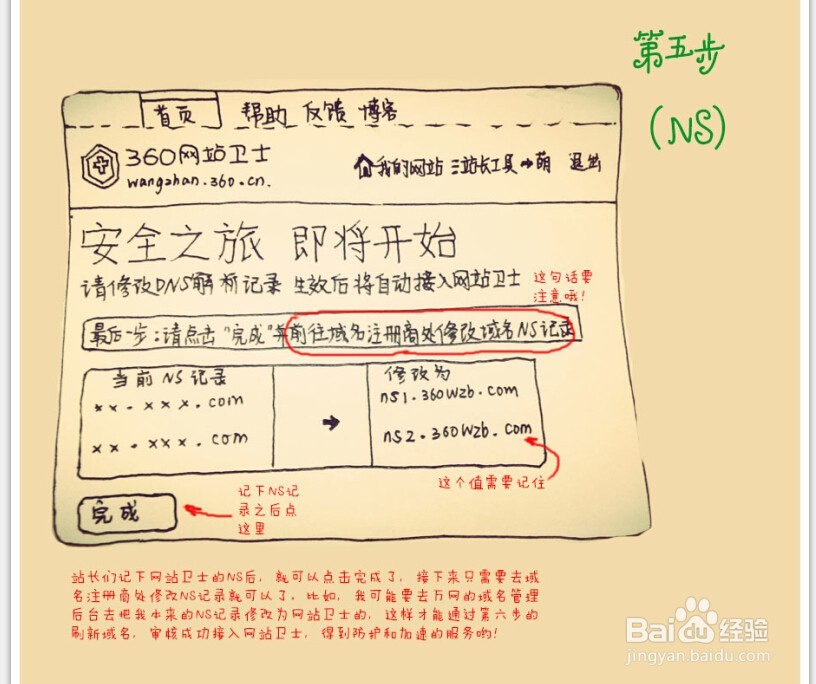 第五步
(NS)
首页 帮助 反馈 博客
360网站卫士
wangzhan.360.cn.
我的网站 站长工具 萌 退出
安全之旅 即将开始
请修改DNS解析记录 生效后将自动接入网站卫士
这句话要
注意哦!
最后一步:请点击"完成"并前往域名注册商处修改域名NS记录
当前 NS 记录
xx.xxx.com
xx.xxx.com
修改为
ns1.360wzb.com
ns2.360wzb.com
这个值需要记住
完成
记下NS记
录之后点
这里
站长们记下网站卫士的NS后,就可以点击完成了,接下来只需要去域
名注册商处修改NS记录就可以了,比如,我可能要去万网的域名管理
后台去把我本来的NS记录修改为网站卫士的,这样才能通过第六步的
刷新域名,审核成功接入网站卫士,得到防护和加速的服务哟!
Baidu经验
jingyan.baidu.com